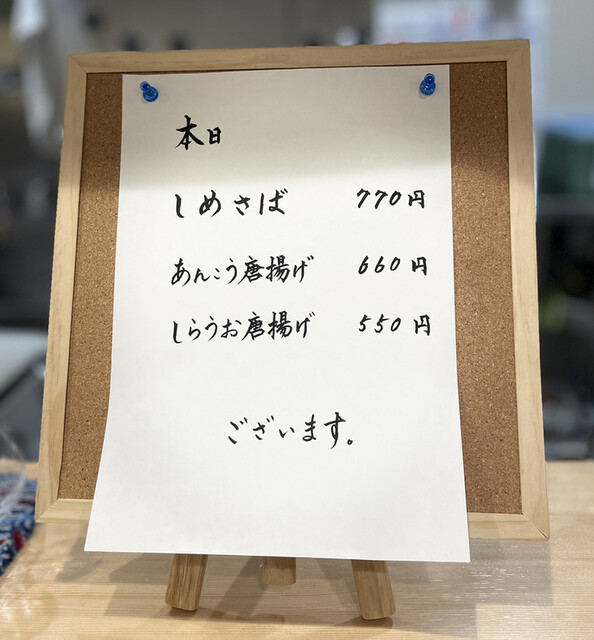 本日
しめさば 770円
あんこう唐揚げ 660円
しらうお唐揚げ 550円
ございます。